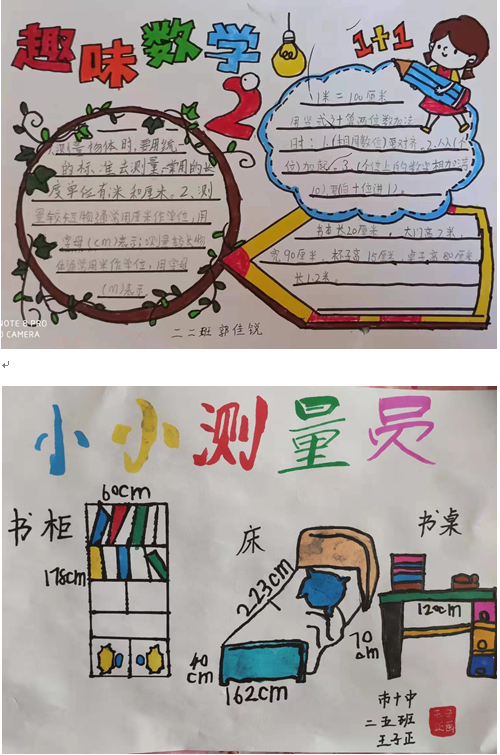 趣味数学
1+1
2
1.测量物体时,要用统一
的标准去测量.常用的长
度单位有米和厘米。2、测
量较短物通常用厘米作单位,用
字母(cm)表示;测量较长物
体通常用米作单位,用字母
(m)表示
1米=100厘米
用竖式计算两位数加法
时:1.(相同数位)要对齐.2.从(个
位)加起.3.(个位上的数字相加)满
10,要向十位进1。
书本长20厘米,大门高2米,
宽90厘米,杯子高15厘米,桌子高80厘米
长1.2米。
二二班 郭佳锐
NOTE 8 PRO
CAMERA
小小测量员
书柜
60cm
175cm
床
223cm
40
cm
162cm
70
cm
书桌
120cm
市十中
二五班
王子正